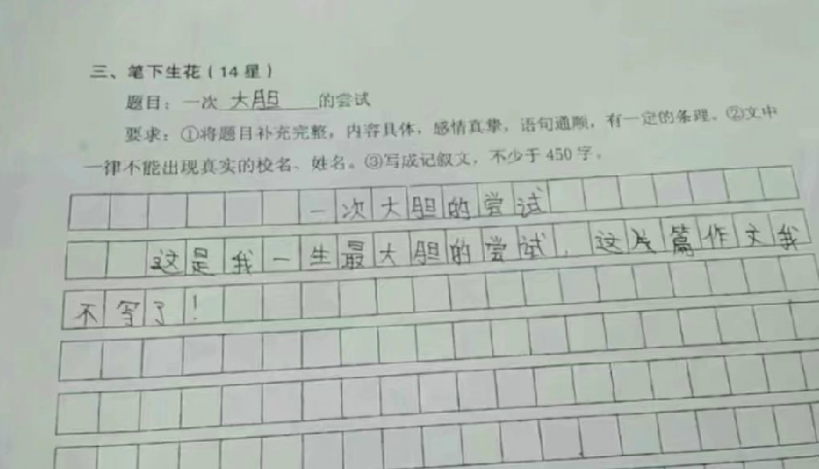 三、笔下生花（14星）
题目：一次 大胆 的尝试
要求：①将题目补充完整，内容具体，感情真挚，语句通顺，有一定的条理。②文中
一律不能出现真实的校名、姓名。③写成记叙文，不少于450字。
一次大胆的尝试
这是我一生最大胆的尝试，这篇作文我
不写了！